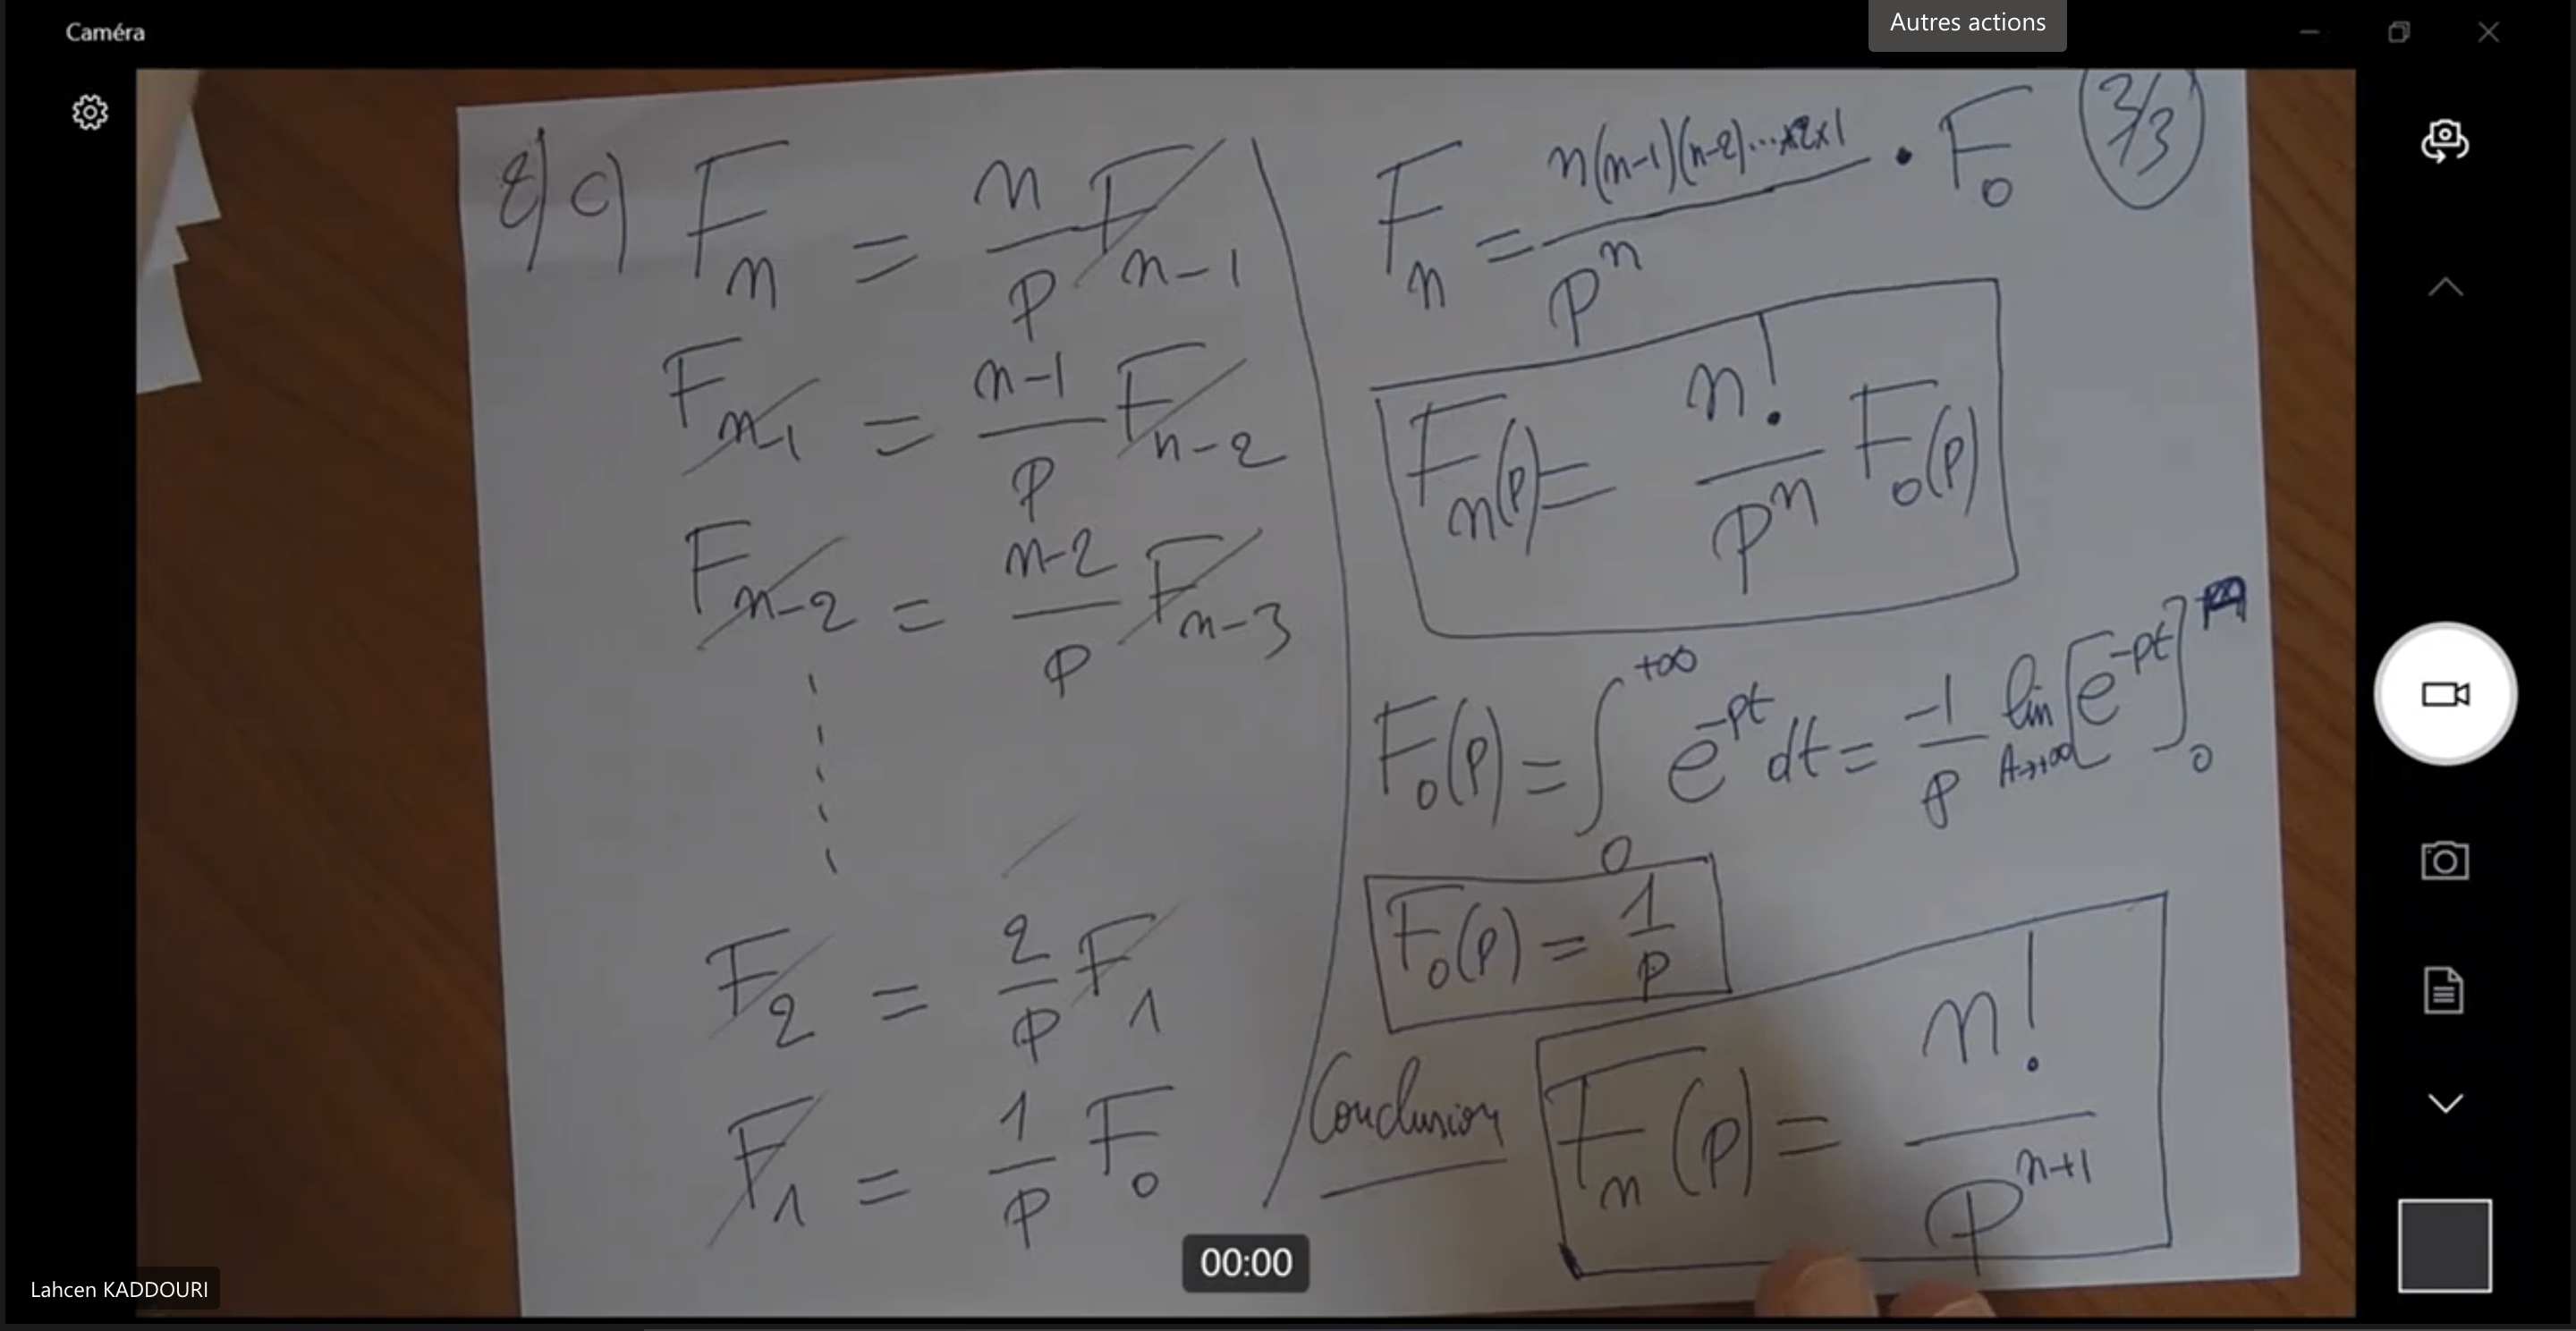 Caméra
Autres actions
2/3
8) c) F_n = n/p F_{n-1}
F_{n-1} = n-1/p F_{n-2}
F_{n-2} = n-2/p F_{n-3}
F_2 = 2/p F_1
F_1 = 1/p F_0
F_n = n(n-1)(n-2)...×2×1/p^n · F_0
F_n(p) = n!/p^n F_0(p)
F_0(p) = ∫_0^{+∞} e^{-pt} dt = -1/p lim_{A→+∞} [e^{-pt}]_0
F_0(p) = 1/p
Conclusion F_n(p) = n!/p^{n+1}
00:00
Lahcen KADDOURI